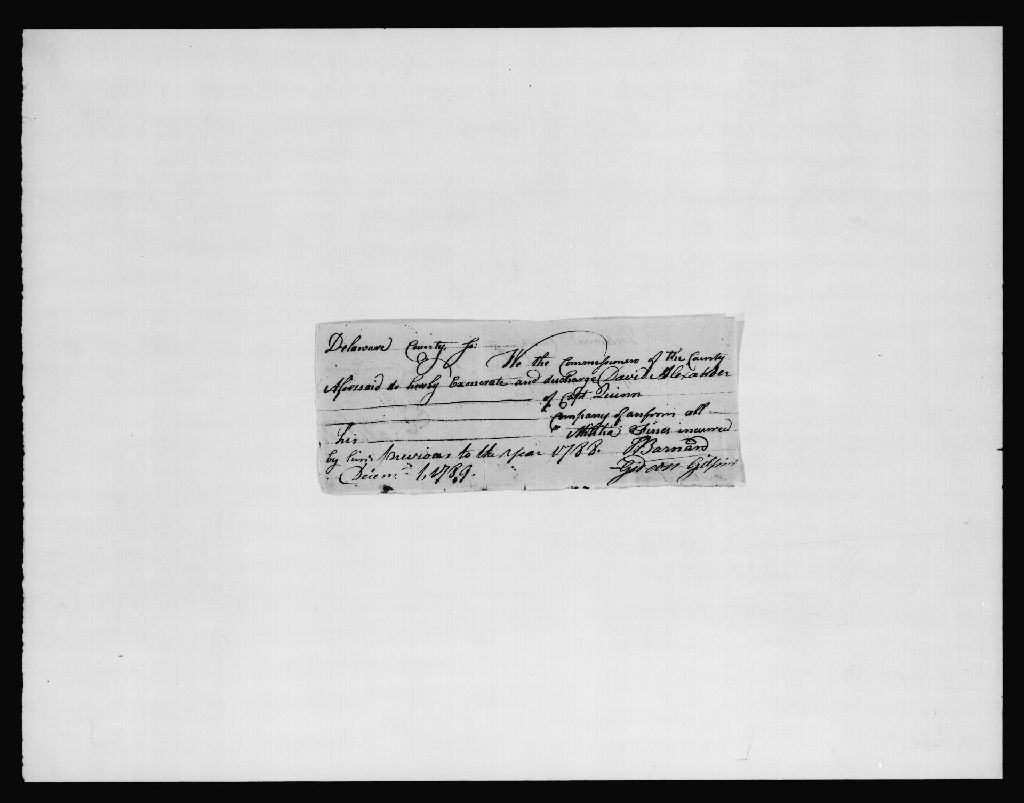 Delaware County Ss: We the Commissioners of the County
Aforesaid do hereby Exonerate and discharge David Alexander
of Capt Quinn
Company of & from all
his Militia Fines incurred
by him previous to the Year 1788.
R Barnard
Decem 1, 1789. Gideon Gilpin